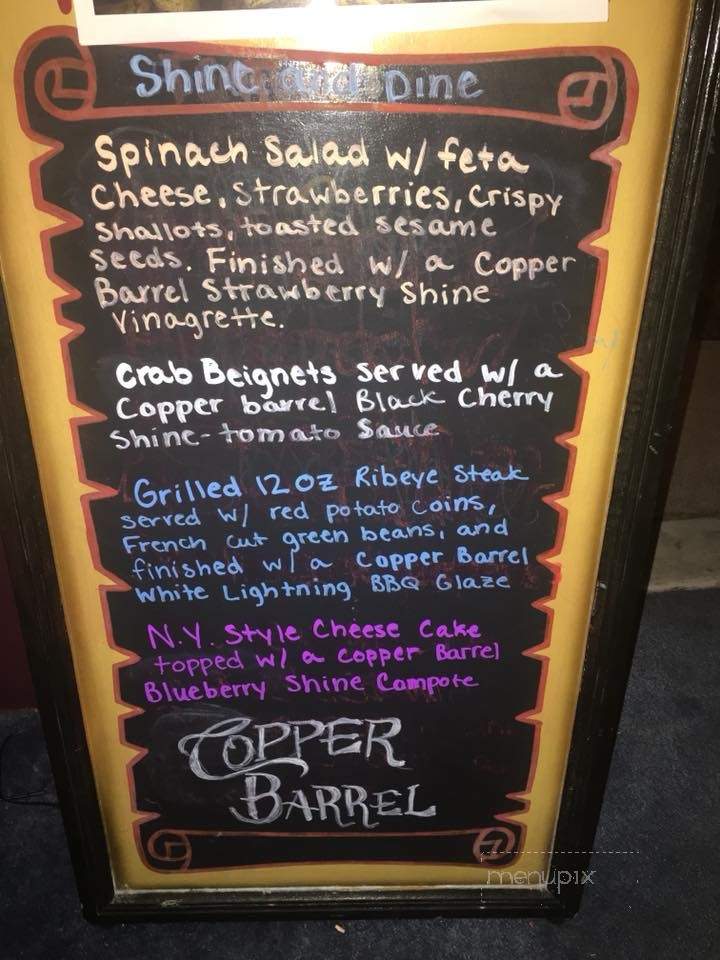 Shine and Dine
Spinach Salad w/ feta
Cheese, Strawberries, Crispy
Shallots, toasted sesame
Seeds. Finished w/ a Copper
Barrel Strawberry Shine
Vinagrette.
Crab Beignets served w/ a
Copper barrel Black Cherry
Shine-tomato Sauce
Grilled 12 oz Ribeye Steak
served w/ red potato coins,
French cut green beans, and
finished w/ a Copper Barrel
White Lightning BBQ Glaze
N.Y. Style Cheese Cake
topped w/ a Copper Barrel
Blueberry Shine Compote
COPPER
BARREL
menupix